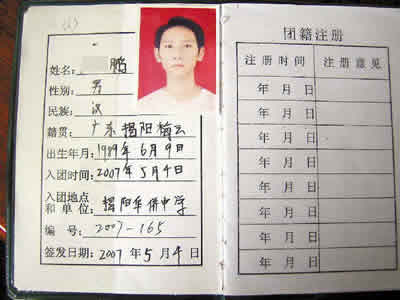 姓名: 鹏
性别: 男
民族: 汉
籍贯: 广东 揭阳 梅云
出生年月: 1989年6月9日
入团时间: 2007年5月4日
入团地点
和单位: 揭阳华侨中学
编号: 2007-165
签发日期: 2007年5月4日
团籍注册
注册时间 注册意见
年 月 日
年 月 日
年 月 日
年 月 日
年 月 日
年 月 日
年 月 日
年 月 日